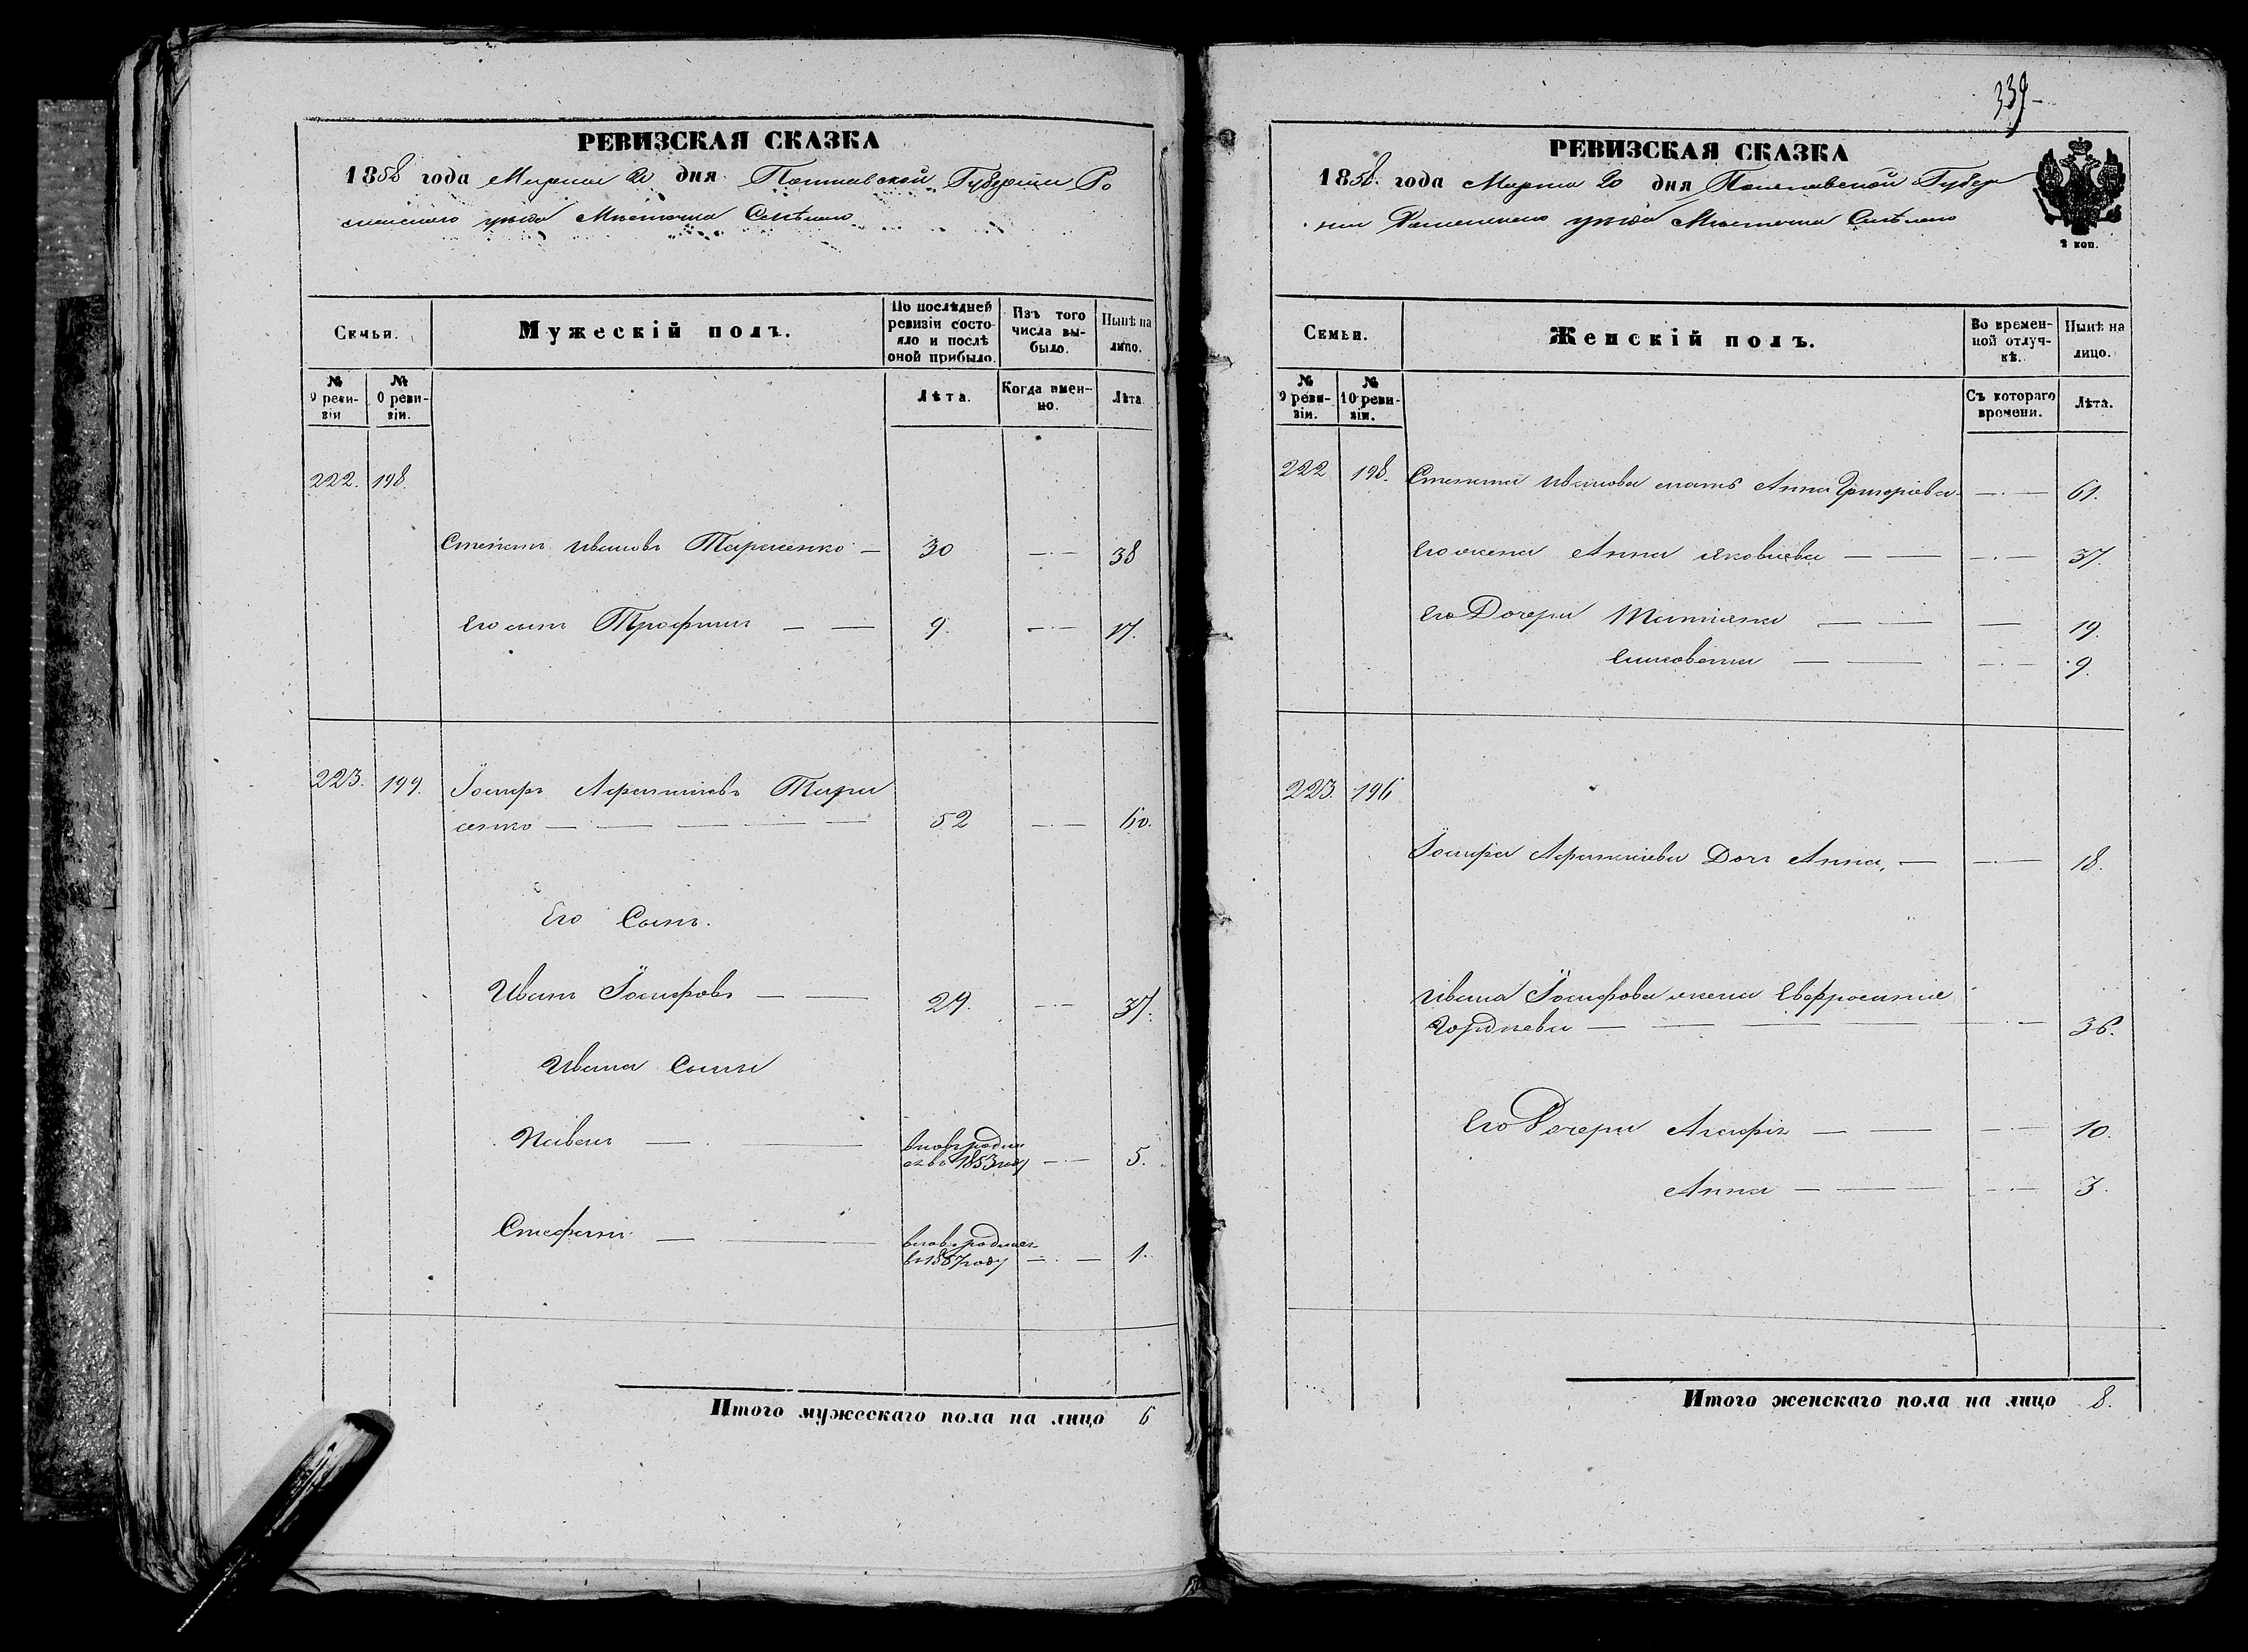 РЕВИЗСКАЯ СКАЗКА
1858 года Марта 20 дня Полтавской Губернии Ро
менскаго уезда Местечка Смелаго
Семьи.
Мужескій полъ.
По послѣдней ревизіи состояло и послѣ оной прибыло.
Изъ того числа выбыло.
Нынѣ на лицо.
№ 9 ревизіи
№ 10 ревизіи.
Лѣта.
Когда именно.
Лѣта.
222. 198.
Степанъ Ивановъ Тарасенко — 30 — 38
Его сынъ Трофимъ — — 9. — 17.
223. 199. Іосифъ Афанасіевъ Тара
сенко — — — — 52 — 60.
Его Сынъ.
Иванъ Іосифовъ — — 29. — 37.
Ивана Сыны
Павелъ — — вновь родил
ся въ 1853 году — 5.
Стефанъ — — вновь родился
въ 1857 году — 1.
Итого мужескаго пола на лицо 6
339
РЕВИЗСКАЯ СКАЗКА
1858. года Марта 20 дня Полтавской Губер
ніи Роменскаго уезда Местечка Смелаго
2 коп.
Семьи.
Женскій полъ.
Во временной отлучкѣ.
Нынѣ на лицо.
№ 9 ревизіи.
№ 10 ревизіи.
Съ котораго времени.
Лѣта.
222 198. Степана Иванова мать Анна Григоріева — 61.
Его жена Анна Яковлева — — — 37.
Его Дочери Татіяна — — — 19.
Елисовета — — — 9.
223. 196
Іосифа Афанасіева Дочь Анна, — — 18.
Ивана Іосифова жена Евфросинія
Гордѣева — — — — 36.
Его Дочери Агафія — — — 10.
Анна — — — 3.
Итого женскаго пола на лицо 8.